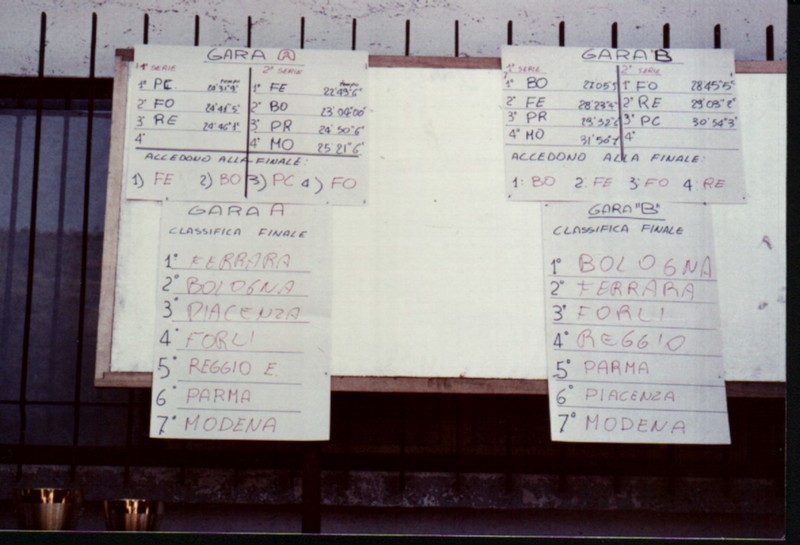 GARA A
1ª SERIE 2ª SERIE
tempo tempo
1° PC 1° FE 22'49"6
2° FO 2° BO
3° RE 3° PR 24'50"6
4° 4° MO 25'21"6
ACCEDONO ALLA FINALE:
1) FE 2) BO 3) PC 4) FO
GARA A
CLASSIFICA FINALE
1° FERRARA
2° BOLOGNA
3° PIACENZA
4° FORLI
5° REGGIO E.
6° PARMA
7° MODENA
GARA "B"
1ª SERIE 2ª SERIE
1° BO 1° FO 28'45"5
2° FE 2° RE
3° PR 3° PC 30'54"3
4° MO 4°
ACCEDONO ALLA FINALE:
1: BO 2: FE 3: FO 4: RE
GARA "B"
CLASSIFICA FINALE
1° BOLOGNA
2° FERRARA
3° FORLI
4° REGGIO
5° PARMA
6° PIACENZA
7° MODENA